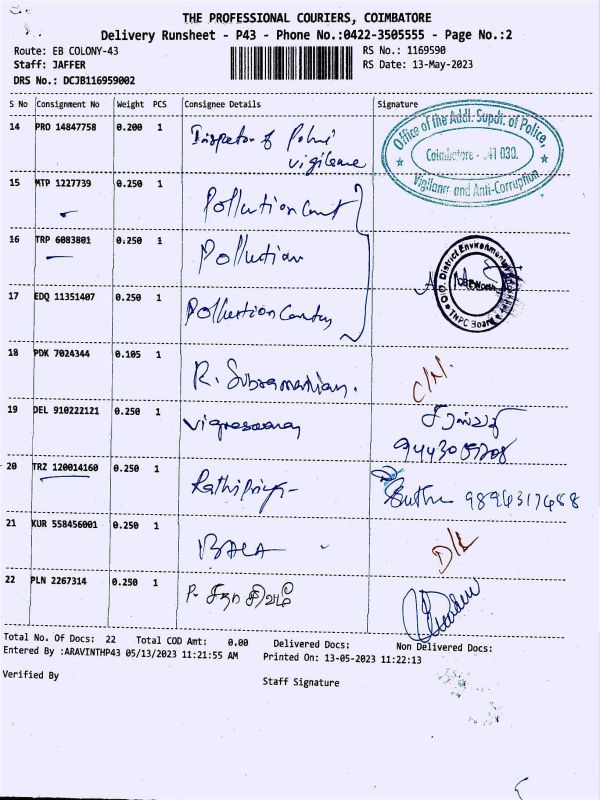 THE PROFESSIONAL COURIERS, COIMBATORE
Delivery Runsheet - P43 - Phone No.:0422-3505555 - Page No.:2
Route: EB COLONY-43
RS No.: 1169590
Staff: JAFFER
RS Date: 13-May-2023
DRS No.: DCJB116959002
S No Consignment No Weight PCS Consignee Details Signature
14 PRO 14847758 0.200 1 Inspector of Police
vigilance
Office of the Addl. Supdt. of Police,
Coimbatore - 641 030.
Vigilance and Anti-Corruption
15 MTP 1227739 0.250 1 Pollution
16 TRP 6083801 0.250 1 Pollution
O/O. District Environmental
TNPC Board
17 EDQ 11351407 0.250 1 Pollution
18 PDK 7024344 0.105 1 R. Subramanian.
19 DEL 910222121 0.250 1
20 TRZ 120014160 0.250 1 Rathipriya 9894317488
21 KUR 558456001 0.250 1 BALA
D/L
22 PLN 2267314 0.250 1 P.
Total No. Of Docs: 22 Total COD Amt: 0.00 Delivered Docs: Non Delivered Docs:
Entered By :ARAVINTHP43 05/13/2023 11:21:55 AM Printed On: 13-05-2023 11:22:13
Verified By
Staff Signature